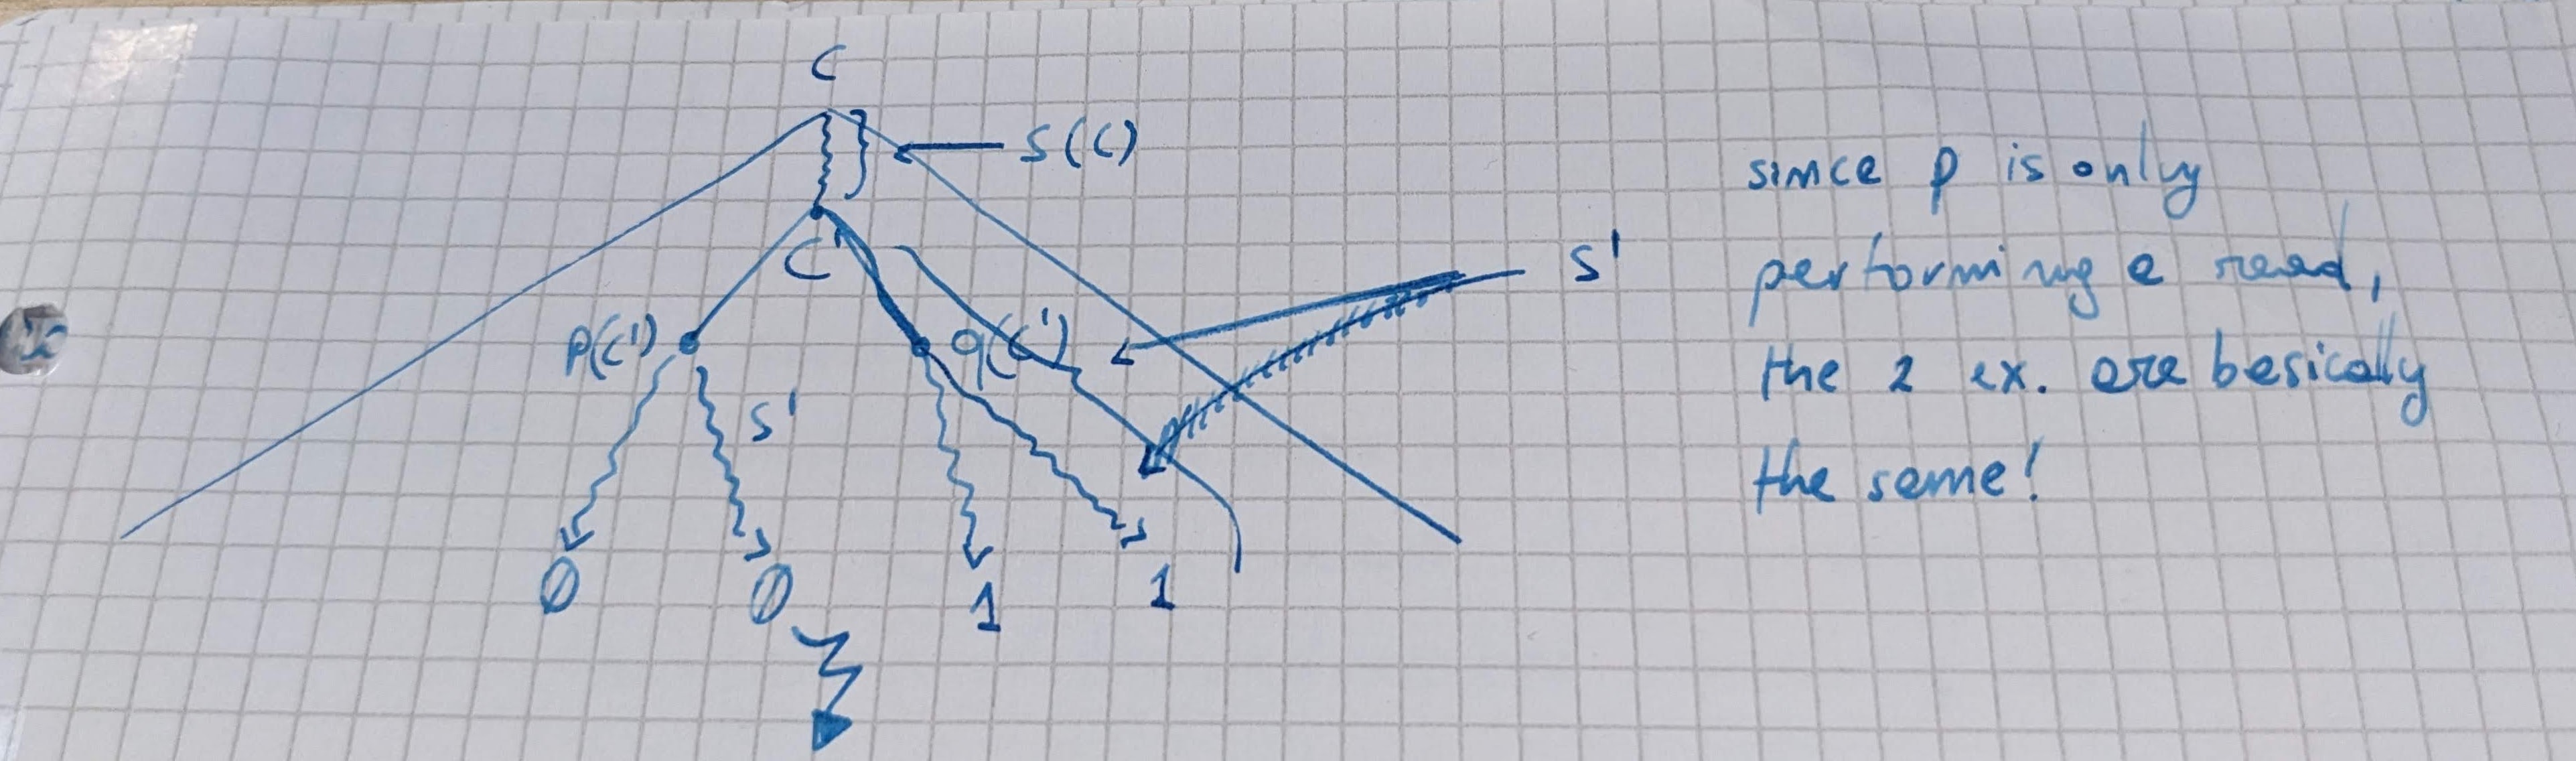 C
S(C)
C'
S'
p(C')
q(C')
S'
0
0
1
1
since p is only
performing a read,
the 2 ex. are basically
the same!